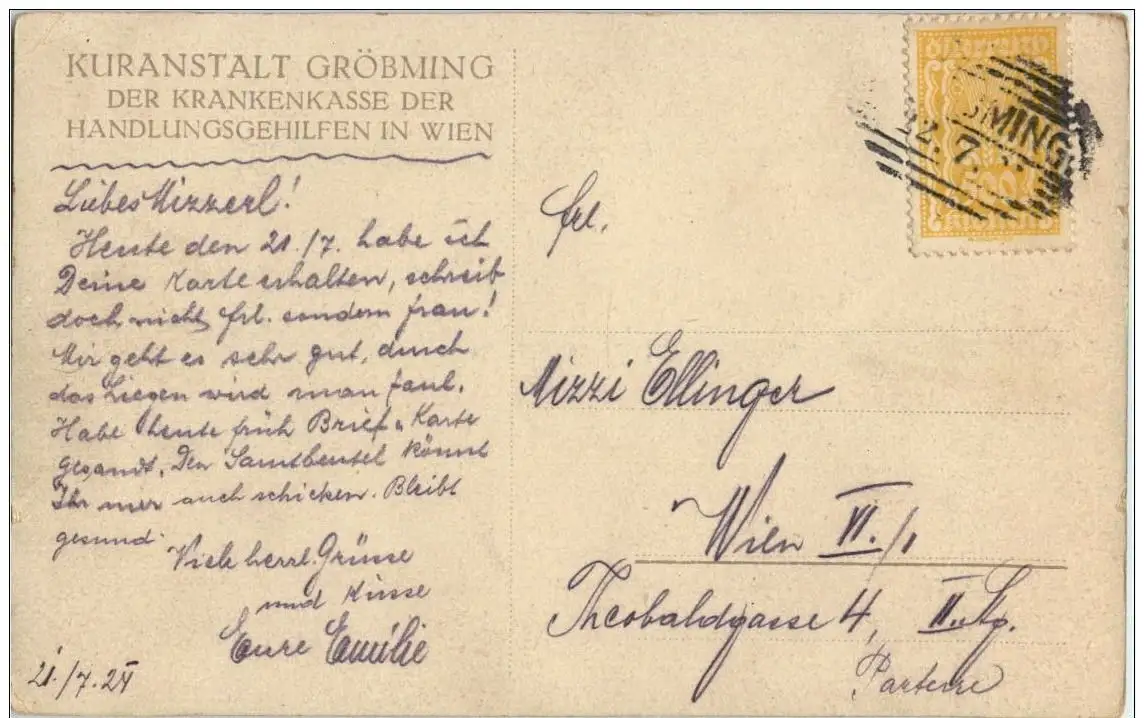 KURANSTALT GRÖBMING
DER KRANKENKASSE DER
HANDLUNGSGEHILFEN IN WIEN
Liebes Mizzerl!
Heute den 21./7. habe ich
Deine Karte erhalten, schreib
doch nicht frl. sondern frau!
Mir geht es sehr gut, durch
das Liegen wird man faul.
Habe heute früh Brief u Karte
gesandt. Den Samtbeutel könnt
Ihr mir auch schicken. Bleibt
gesund.
Viele herzl. Grüsse
und Küsse
Eure Emilie
21./7. 24
MING
2. 7.
500
frl.
Mizzi Ellinger
Wien VI./1
Theobaldgasse 4, II. Stg.
Parterre